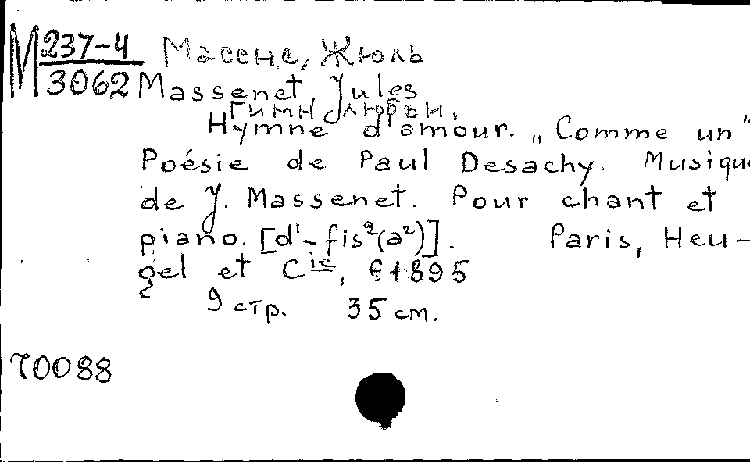 М 237-4 Масене, Жюль
3062 Massenet, Jules
Гимн любви.
Hymne d'amour. „Comme un"
Poésie de Paul Desachy. Musique
de J. Massenet. Pour chant et
piano. [d¹-fis²(a²)]. Paris, Heu-
gel et Cie, ©1895
9 стр. 35 см.
70088